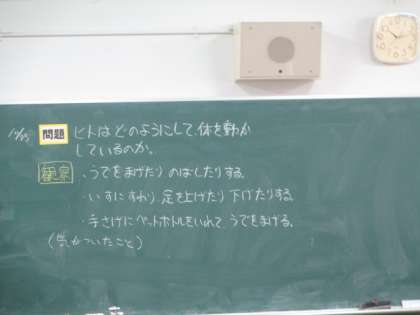 10/25 問題 ヒトはどのようにして、体を動か
しているのか。
観察 ・うでをまげたり のばしたりする。
・いすにすわり、足を上げたり 下げたりする。
・手さげにペットボトルをいれて、うでをまげる。
(気がついたこと)